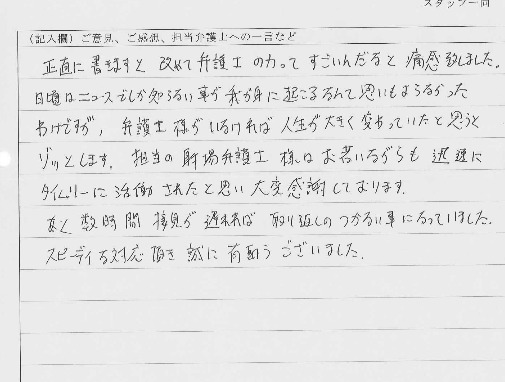 スタッフ一同
（記入欄）ご意見、ご感想、担当弁護士への一言など
正直に書きますと 改めて弁護士 の力って すごいんだなと 痛感致しました。
日頃はニュースでしか知らない事が 我が身に 起こるなんて思いもよらなかった
わけですが、弁護士 様がいなければ 人生が大きく変わっていたと思うと
ゾッとします。担当の 的場弁護士 様は お若いながらも 迅速に
タイムリーに 活動 されたと思い 大変感謝しております。
数時間 接見が 遅れれば 取り返しの つかない事になっていました。
スピーディな対応 頂き 誠に 有難う ございました。